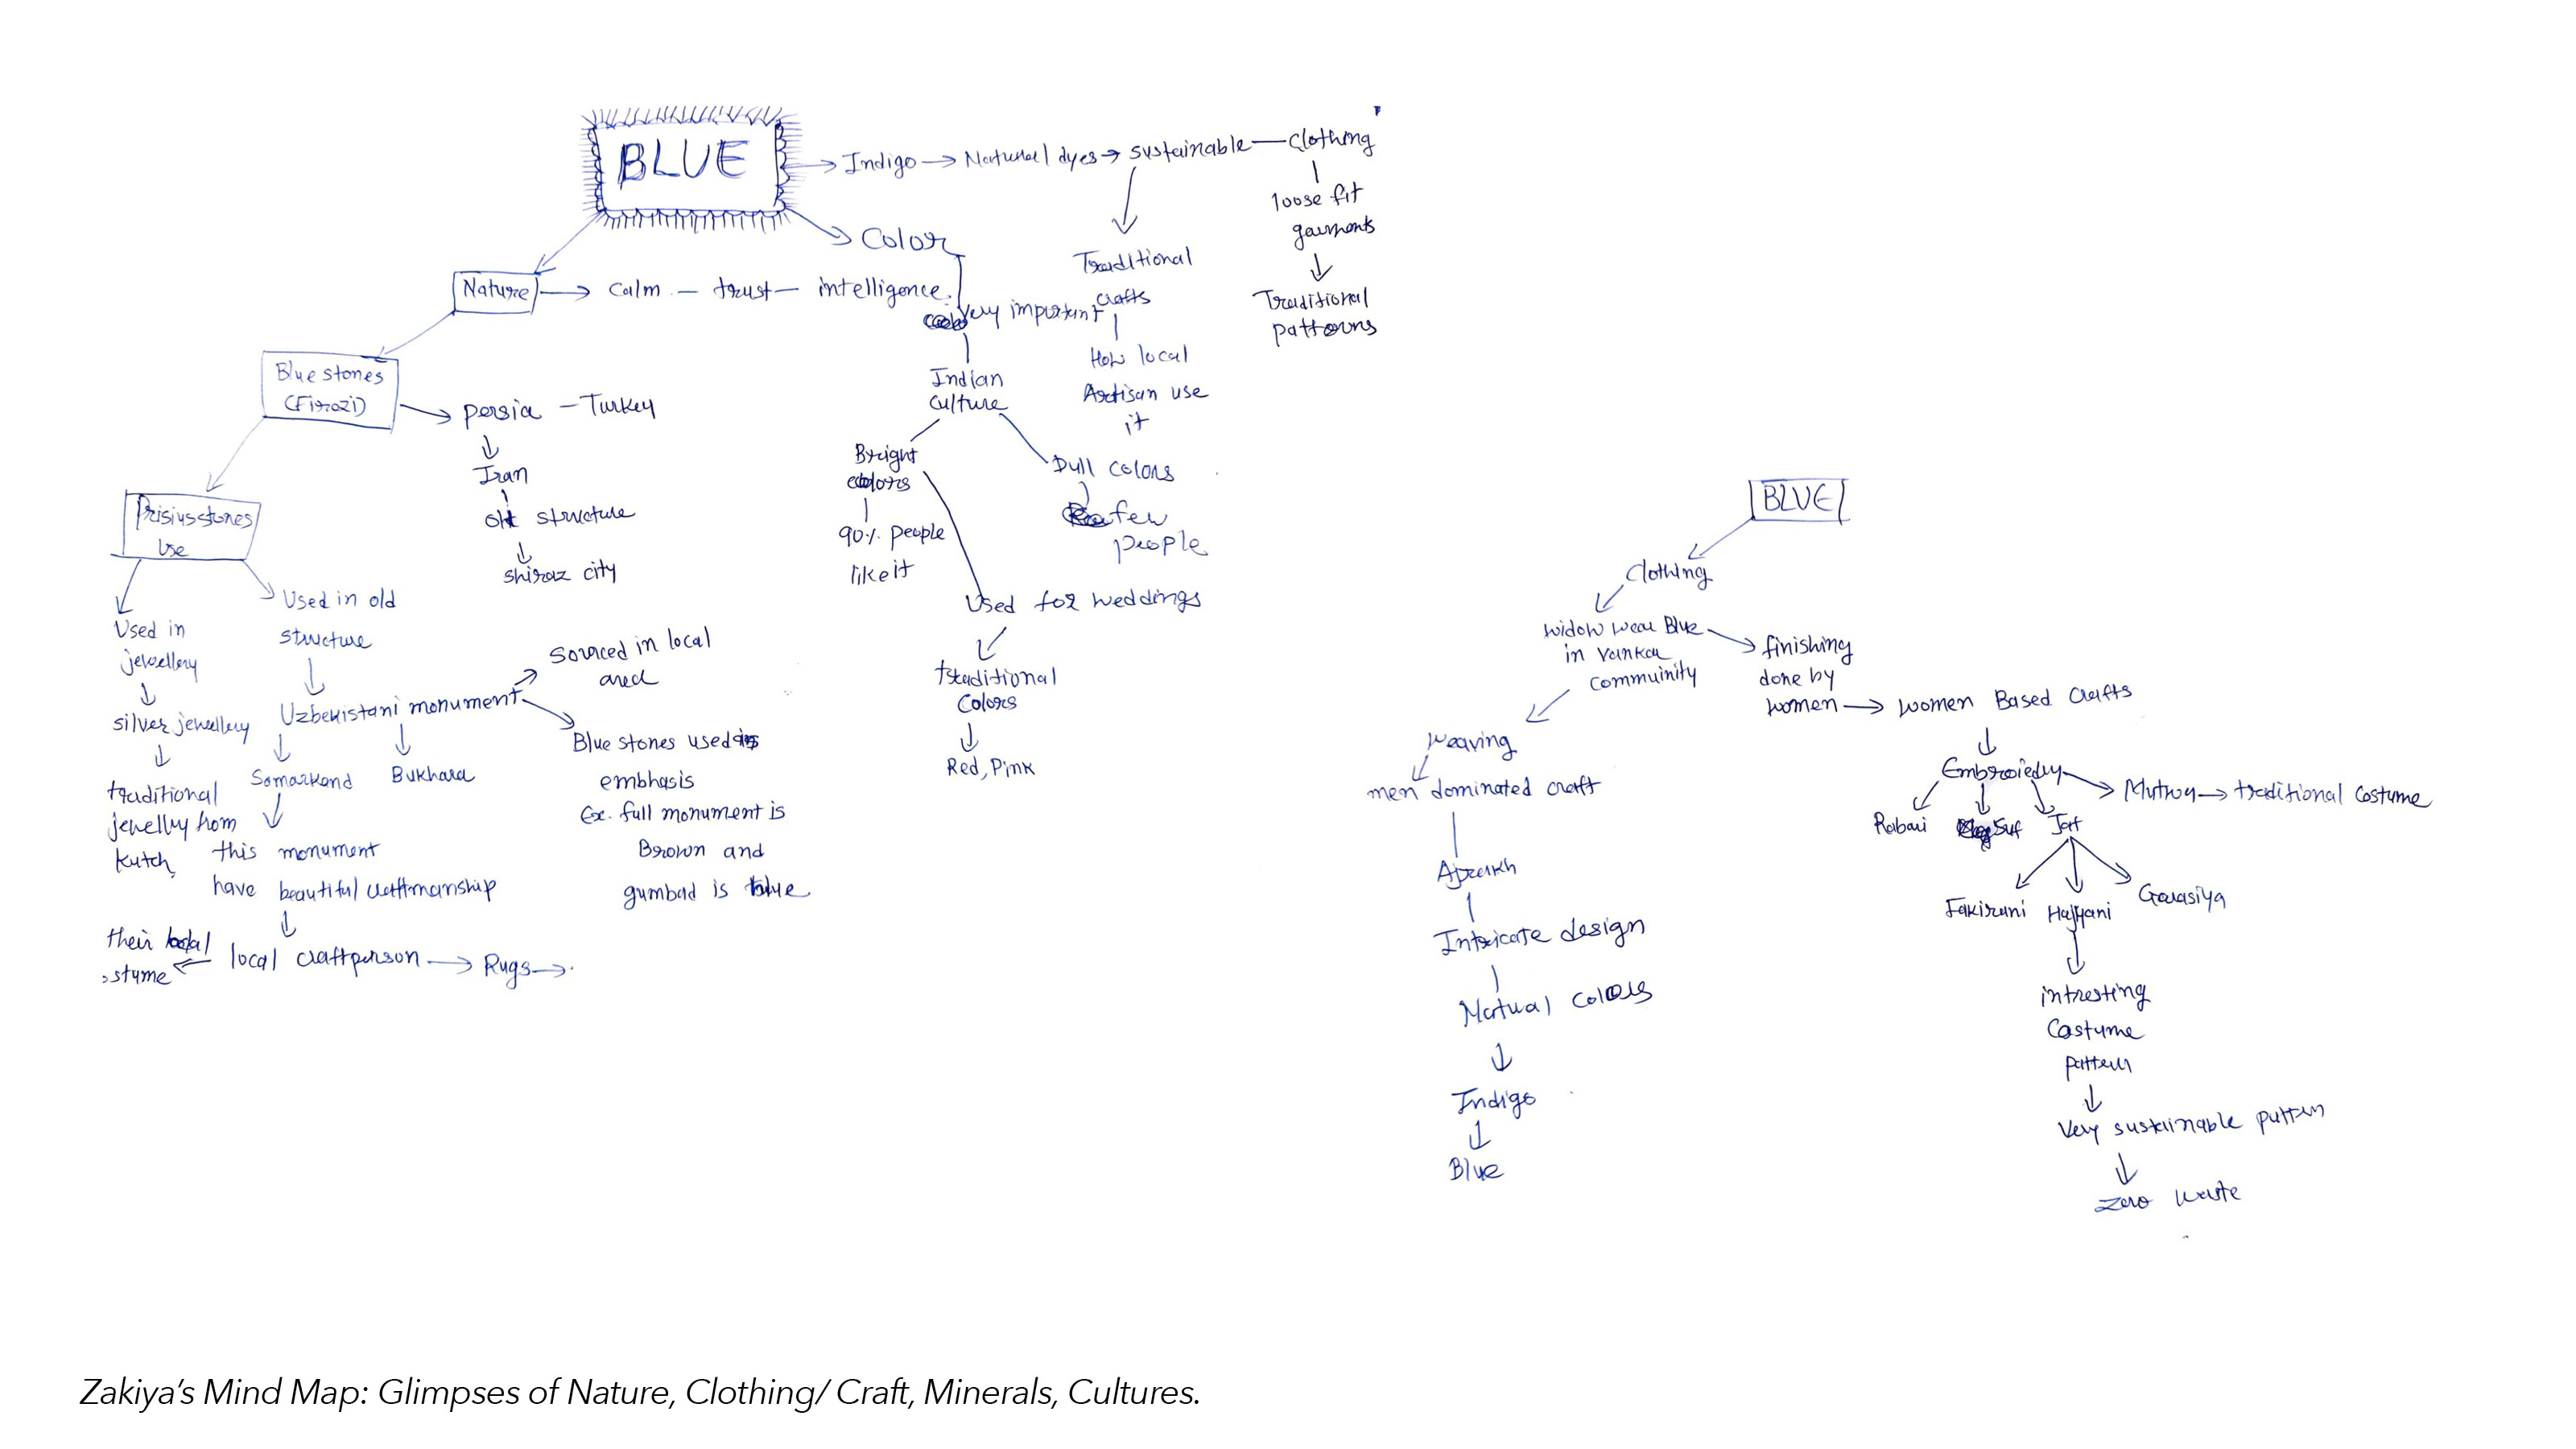 BLUE
Indigo → Natural dyes → sustainable — Clothing
loose fit
garments
Traditional
patterns
Traditional
crafts
How local
Artisan use
it
Color
very important
Indian
Culture
Bright
colors
90% people
like it
Dull colors
few
people
Used for weddings
traditional
Colors
Red, Pink
Nature → Calm — trust — intelligence.
Blue stones
(Firozi)
persia — Turkey
Iran
old structure
shiraz city
Prisius stones
Use
Used in
jewellery
silver jewellery
traditional
jewellry from
Kutch,
Used in old
structure
Uzbekistani monument
Sourced in local
area
Blue stones used
embhasis
Ex. full monument is
Brown and
gumbad is blue
Somarkand
Bukhara
this monument
have beautiful craftmanship
local craftperson → Rugs →
their local
stume
BLUE
Clothing
widow wear Blue
in Vankar
Commuinity
finishing
done by
women → women Based Crafts
Weaving
men dominated craft
Ajrakh
Intricate design
Natual Colors
Indigo
Blue
Embroiedry
Mutwa → traditional Costume
Rabari
Suf
Jat
Fakirani
Hajiyani
Garasiya
intresting
Costume
pattern
Very sustainable pattern
Zero waste
Zakiya's Mind Map: Glimpses of Nature, Clothing/ Craft, Minerals, Cultures.